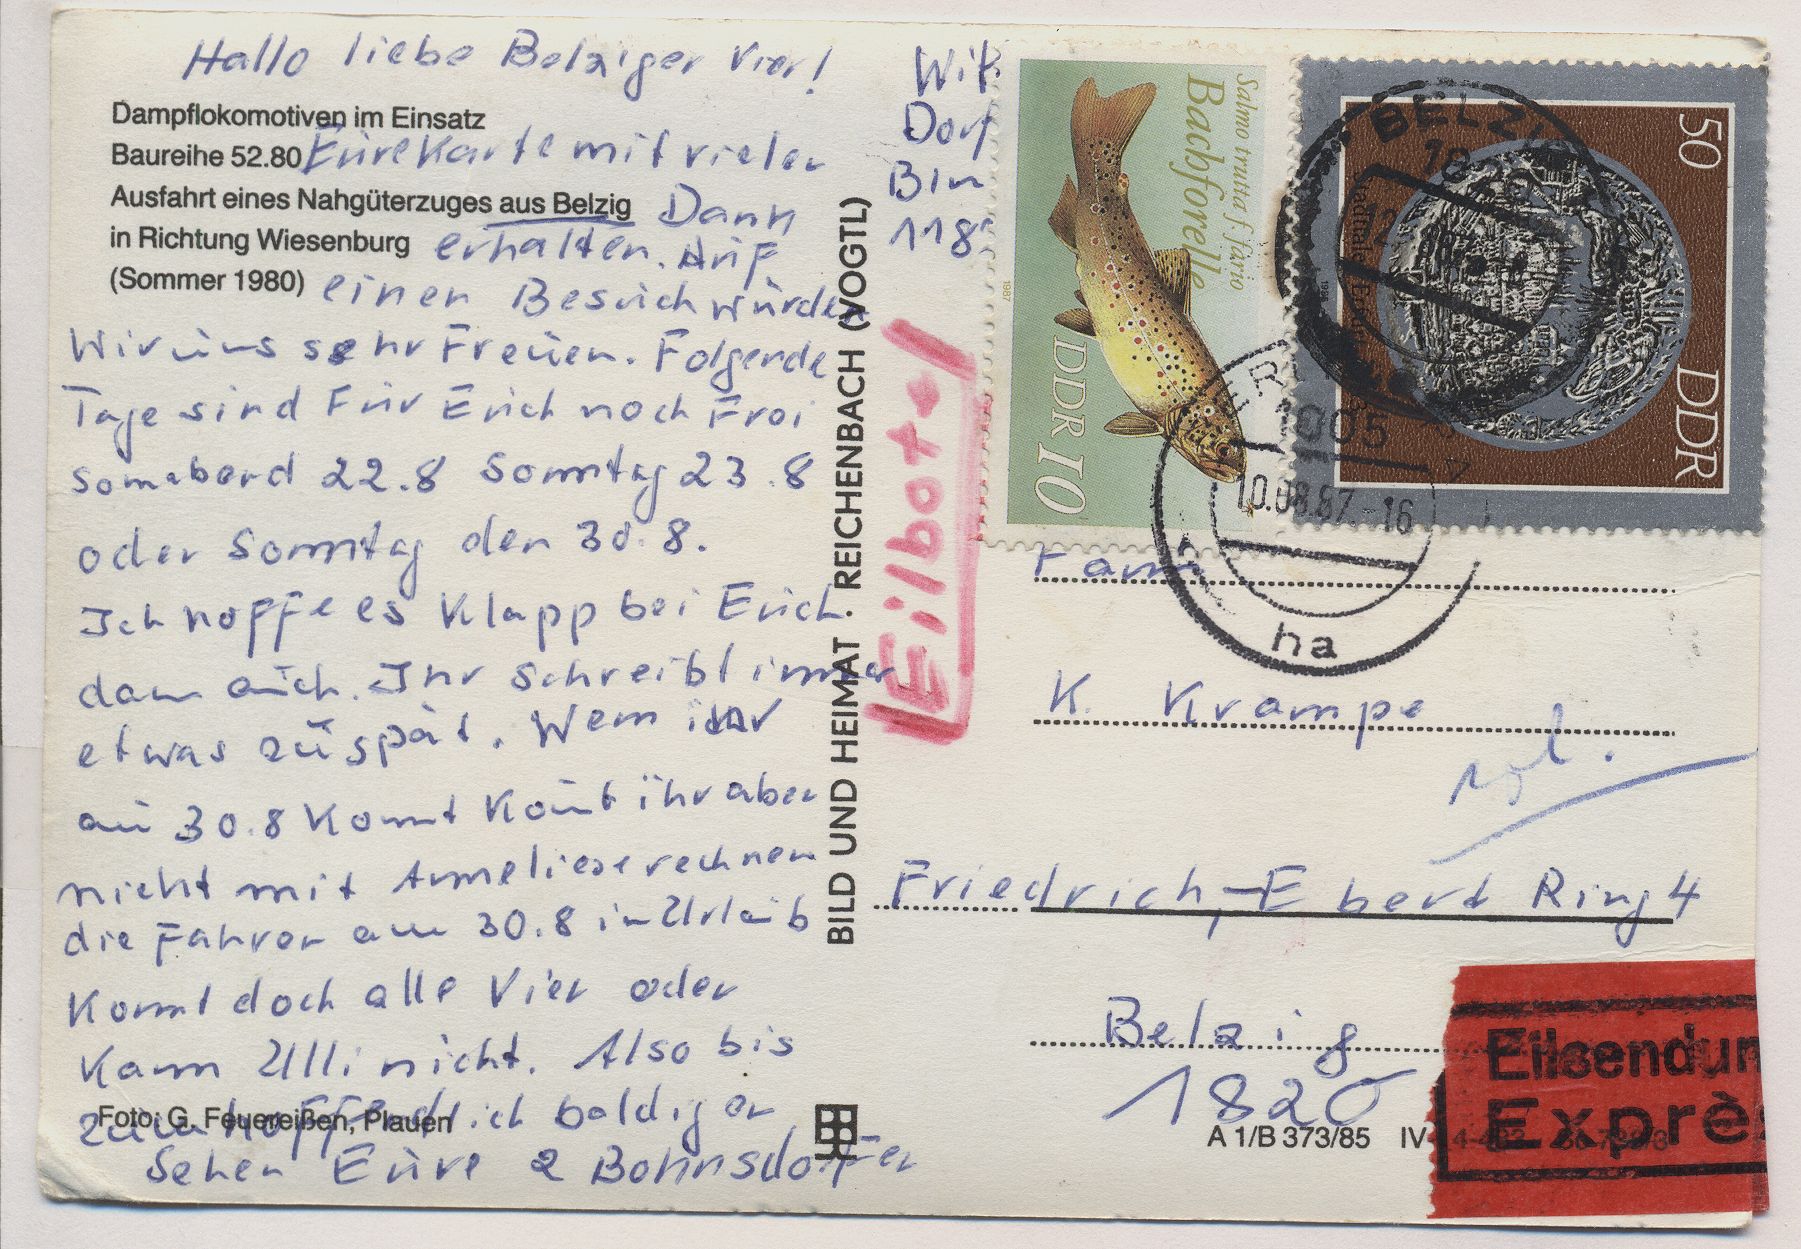 Hallo liebe Belziger Vier!
Dampflokomotiven im Einsatz
Baureihe 52.80
Ausfahrt eines Nahgüterzuges aus Belzig
in Richtung Wiesenburg
(Sommer 1980)
Eure Karte mit vielen
Dank
erhalten. Auf
einen Besuch würden
Wir uns sehr Freuen. Folgende
Tage sind Für Erich noch Frei
Sonnabend 22.8 Sonntag 23.8
oder Sonntag den 30.8.
Ich hoffe es Klapp bei Erich
dann auch. Ihr Schreibt immer
etwas zu spät. Wenn ihr
am 30.8 Kommt Könnt ihr aber
nicht mit Anneliese rechnen
die Fahren am 30.8 in Urlaub
Kommt doch alle Vier oder
Kann Ulli nicht. Also bis
zum hoffentlich baldigen
Sehen Eure 2 Bohnsdorfer
Foto: G. Feuereißen, Plauen
BILD UND HEIMAT REICHENBACH (VOGTL)
Wit
Dorf
Bln
118
Eilbote
Salmo trutta f. fario
Bachforelle
DDR 10
1987
50
DDR
BELZIG
1820
10.08.87.-16
ha
Fam
K. Krampe
Friedrich,-Ebert Ring 4
Belzig
1820
Eilsendun
Exprès
A 1/B 373/85 IV